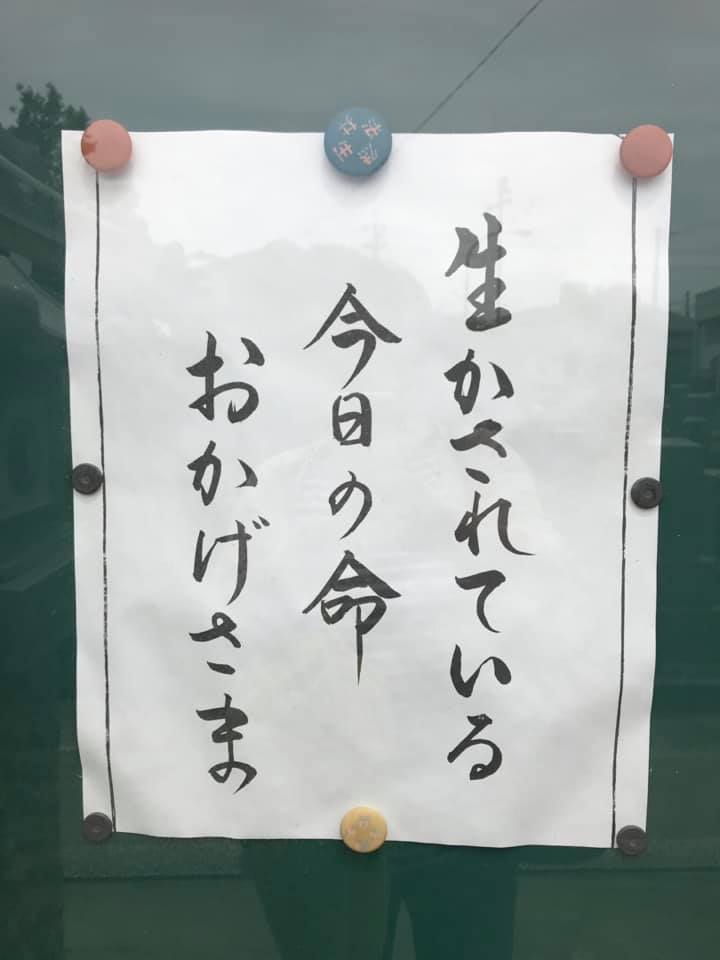 生かされている
今日の命
おかげさま